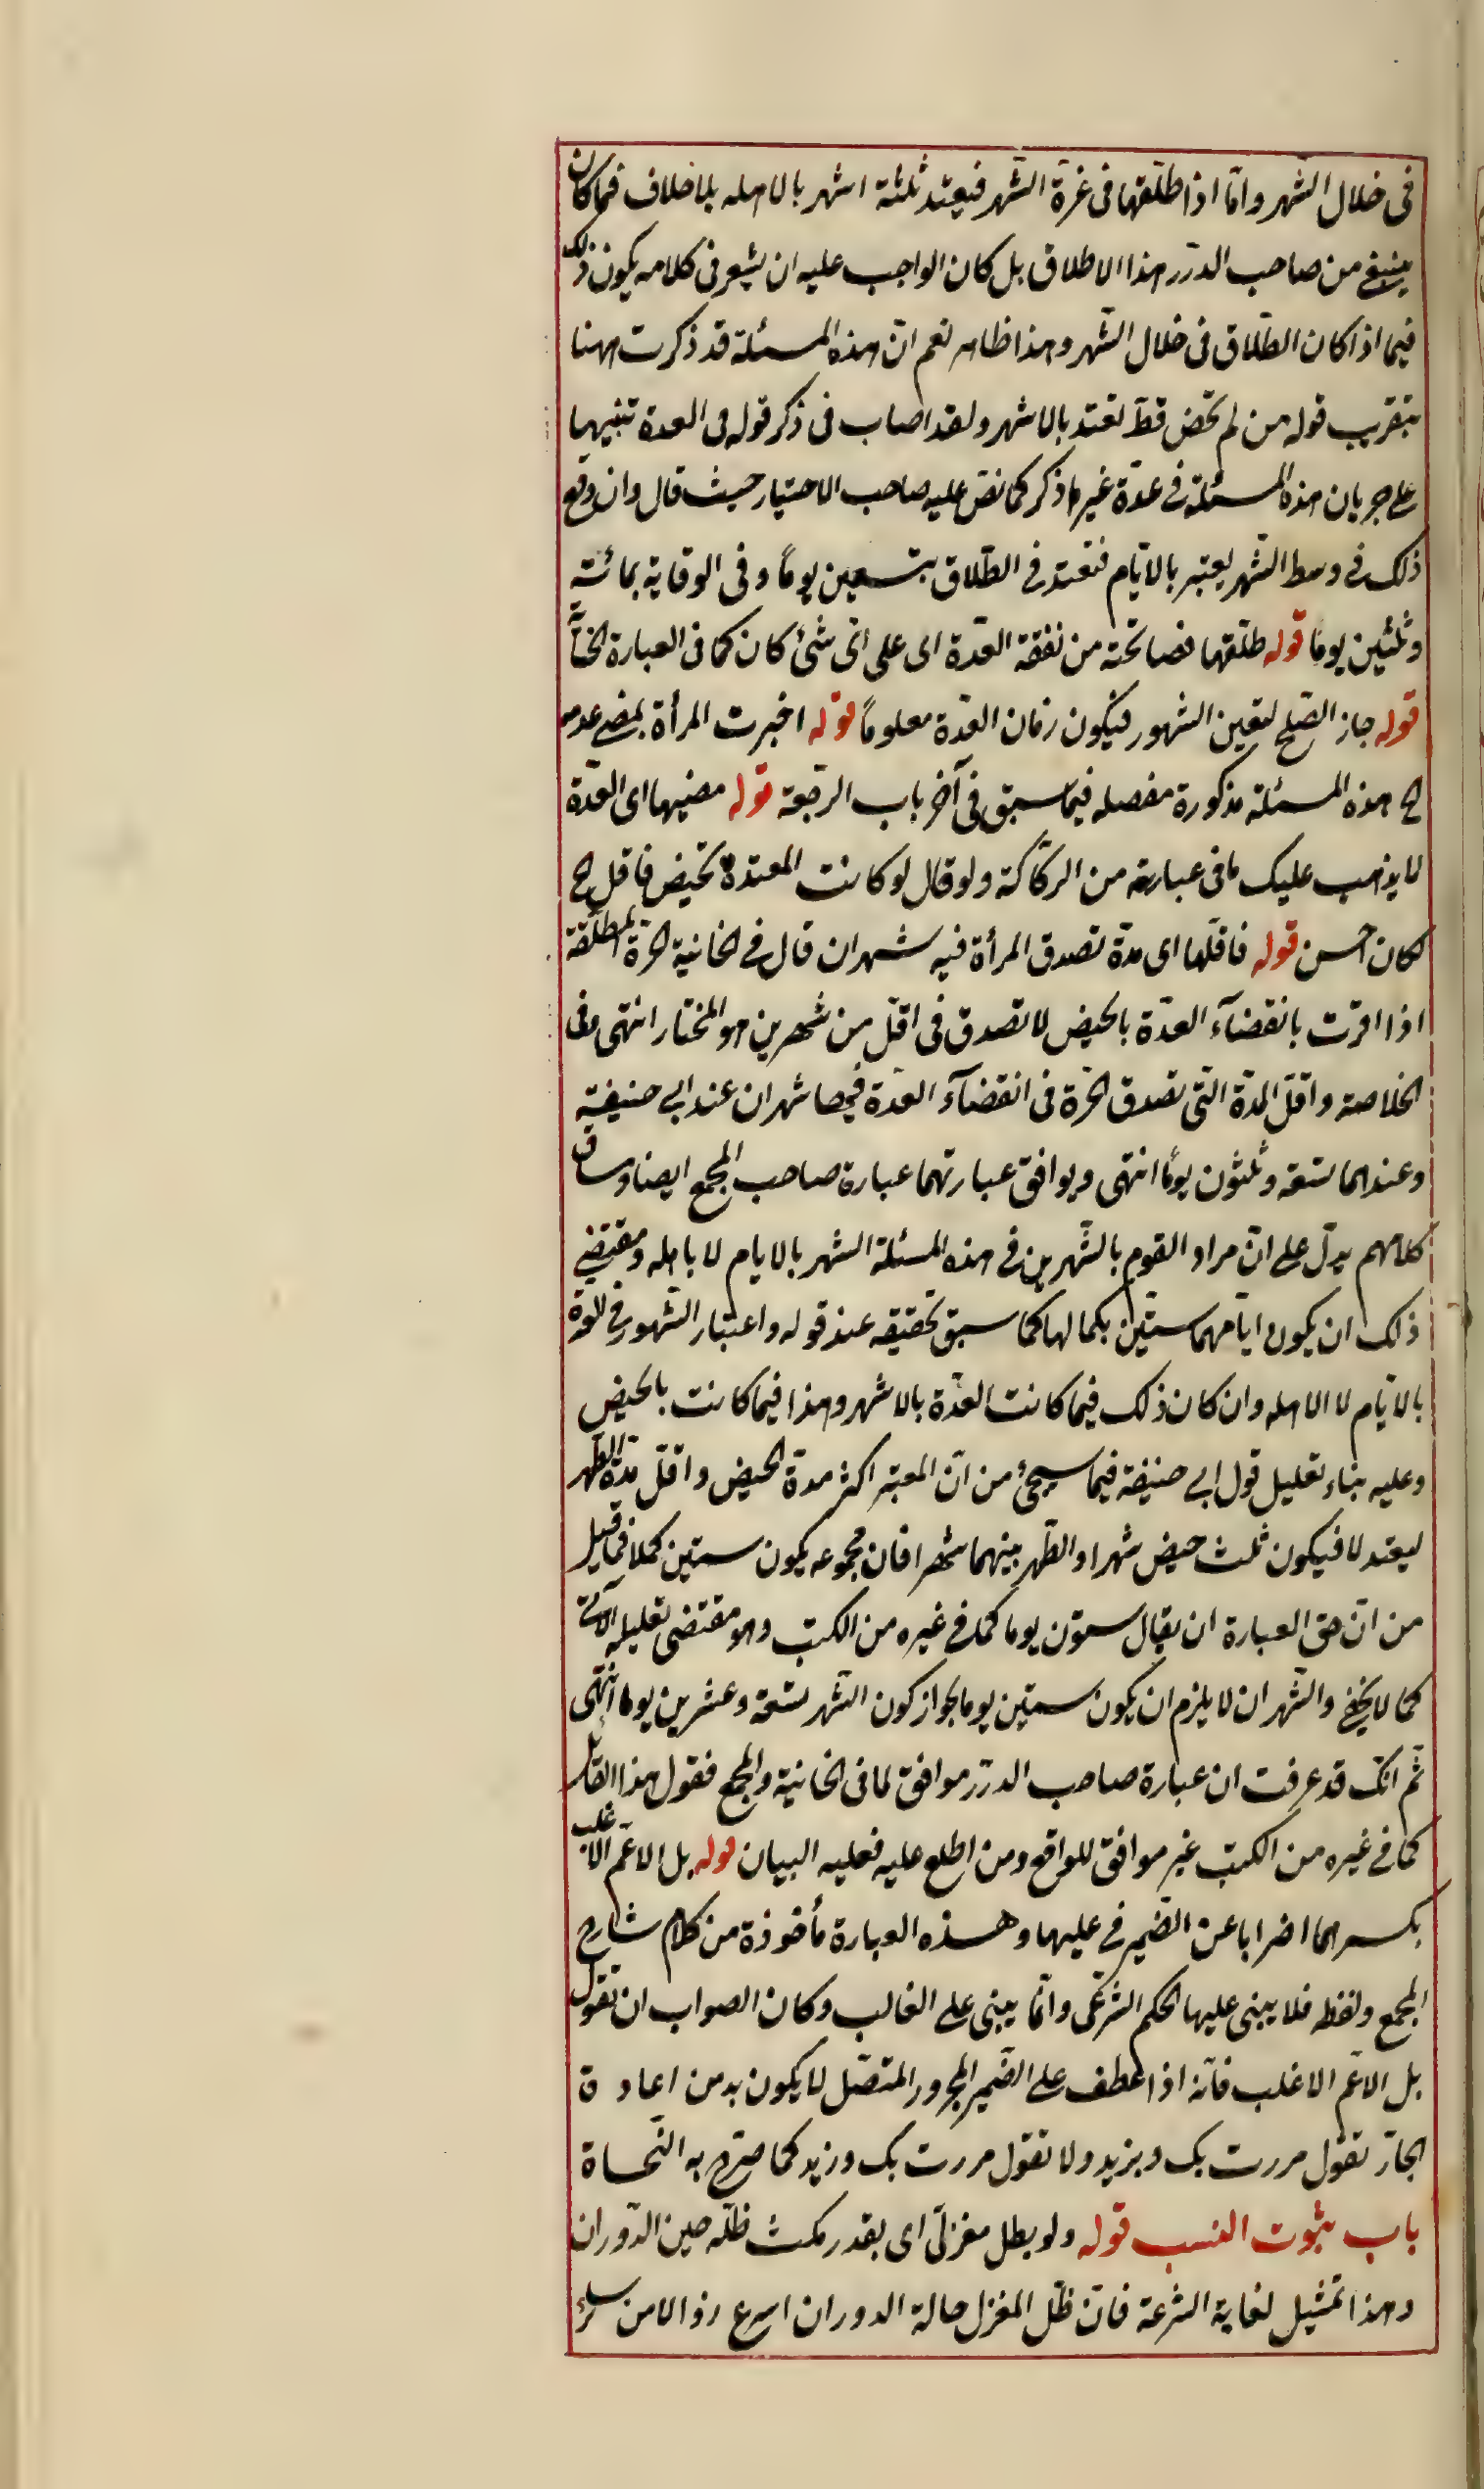 فى خلال الشّهر وامّا اذا طلّقها فى غرّة الشّهر فيعتد ثلثة اشهر بالاهله بلا خلاف فما كان
ينبغى من صاحب الدّرر هذا الاطلاق بل كان الواجب عليه ان يشعر فى كلامه بكون ذلك
فيما اذا كان الطّلاق فى خلال الشّهر وهذا ظاهر نعم انّ هذه المسئلة قد ذكرت ههنا
بتقريب قوله من لم تحض قطّ تعتد بالاشهر ولقد اصاب فى ذكر قوله فى العدة تنبيها
على جريان هذه المسئلة فى عدّة غير ما ذكر كما نصّ عليه صاحب الاختيار حيث قال وان وقع
ذلك فى وسط الشّهر يعتبر بالايّام فتعتد فى الطّلاق بتسعين يوماً وفى الوفاية بمائة
وثلثين يوما قوله طلّقها فصالحته من نفقة العدّة اى على اىّ شئ كان كما فى العبارة الخانية
قوله جاز الصّلح لتعين الشهور فيكون زمان العدّة معلوماً قوله اخبرت المرأة بمضى عدته
الخ هذه المسئلة مذكورة مفصله فيما سبق فى آخر باب الرّجعة قوله مضيها اى العدّة
لا يذهب عليك ما فى عبارته من الركاكة ولو قال لو كانت المعتدة تحيض فاقل الخ
لكان احسن قوله فاقلّها اى مدّة تصدق المرأة فيه شهران قال فى الخانية الحرّة المطلّقة
اذا اقرّت بانقضآء العدّة بالحيض لا تصدق فى اقلّ من شهرين هو المختار انتهى وفى
الخلاصة واقلّ المدّة الّتى تصدق الحرّة فى انقضآء العدّة فيها شهران عند ابى حنيفة
وعندهما تسعة وثلثون يوماً انتهى ويوافق عبارتهما عبارة صاحب المجمع ايضا وسياق
كلامهم يدلّ على انّ مراد القوم بالشّهرين فى هذه المسئلة الشهر بالايام لا باهله ومقتضى
ذلك ان يكون ايّامهما ستّين بكمالها كما سبق تحقيقه عند قوله واعتبار الشّهور فى العدّة
بالايّام لا الاهله وان كان ذلك فيما كانت العدّة بالاشهر وهذا فيما كانت بالحيض
وعليه بناء تعليل قول ابى حنيفة فيما سيجئ من انّ المعتبر اكثر مدّة الحيض واقلّ مدّة الطّهر
ليعتدلا فيكون ثلث حيض شهرا والطّهر بينهما شهرا فان مجموعه يكون ستين كملا فما قيل
من انّ حقّ العبارة ان يقال ستّون يوما كما فى غيره من الكتب وهو مقتضى تعليله الآتى
كما لا يخفى والشّهران لا يلزم ان يكون ستين يوما لجواز كون الشّهر تسعة وعشرين يوما انتهى
ثمّ انّك قد عرفت ان عبارة صاحب الدرّر موافق لما فى الخانية والمجمع فقول هذا القائل
كما فى غيره من الكتب غير موافق للواقع ومن اطلع عليه فعليه البيان قوله بل الاعمّ الاغلب
بكسرهما اضرابا عن الضّمير فى عليها وهذه العبارة مأخوذة من كلام شارح
المجمع ولفظه فلا يبنى عليها الحكم الشّرعى وانّما يبنى على الغالب وكان الصواب ان تقول
بل الاعمّ الاغلب فانّه اذا عطف على الضّمير المجرور المتصّل لا يكون بد من اعادة
الجارّ تقول مررت بك وبزيد ولا تقول مررت بك وزيد كما صرّح به النّحاة
باب ثبوت النسب قوله ولو بظل مغزل اى بقدر مكث ظلّه حين الدّوران
وهذا تمثيل لغاية السّرعة فانّ ظلّ المغزل حالة الدوران اسرع زوالا من سائر